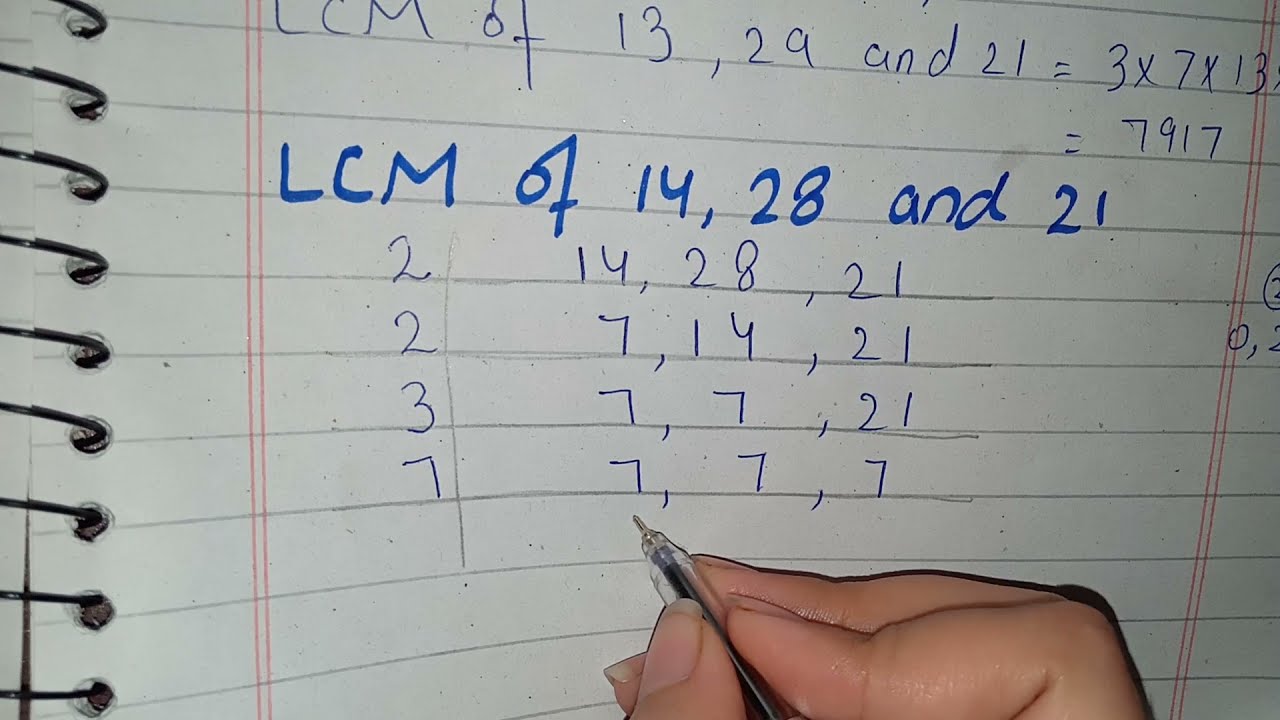 LCM of 13, 29 and 21 = 3x7x13
= 7917
LCM of 14, 28 and 21
2 14, 28, 21
2 7, 14, 21
3 7, 7, 21
7 7, 7, 7
0,